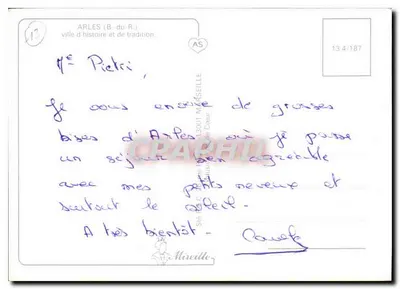 13
ARLES (B.-du-R.)
ville d'histoire et de tradition
AS
13.4/187
Me Pietri,
Je vous envoie de grosses
bises d'Arles où je passe
un séjour bien agréable
avec mes petits neveux et
surtout le soleil.
A très bientôt -
Mireille
CPAPHIL